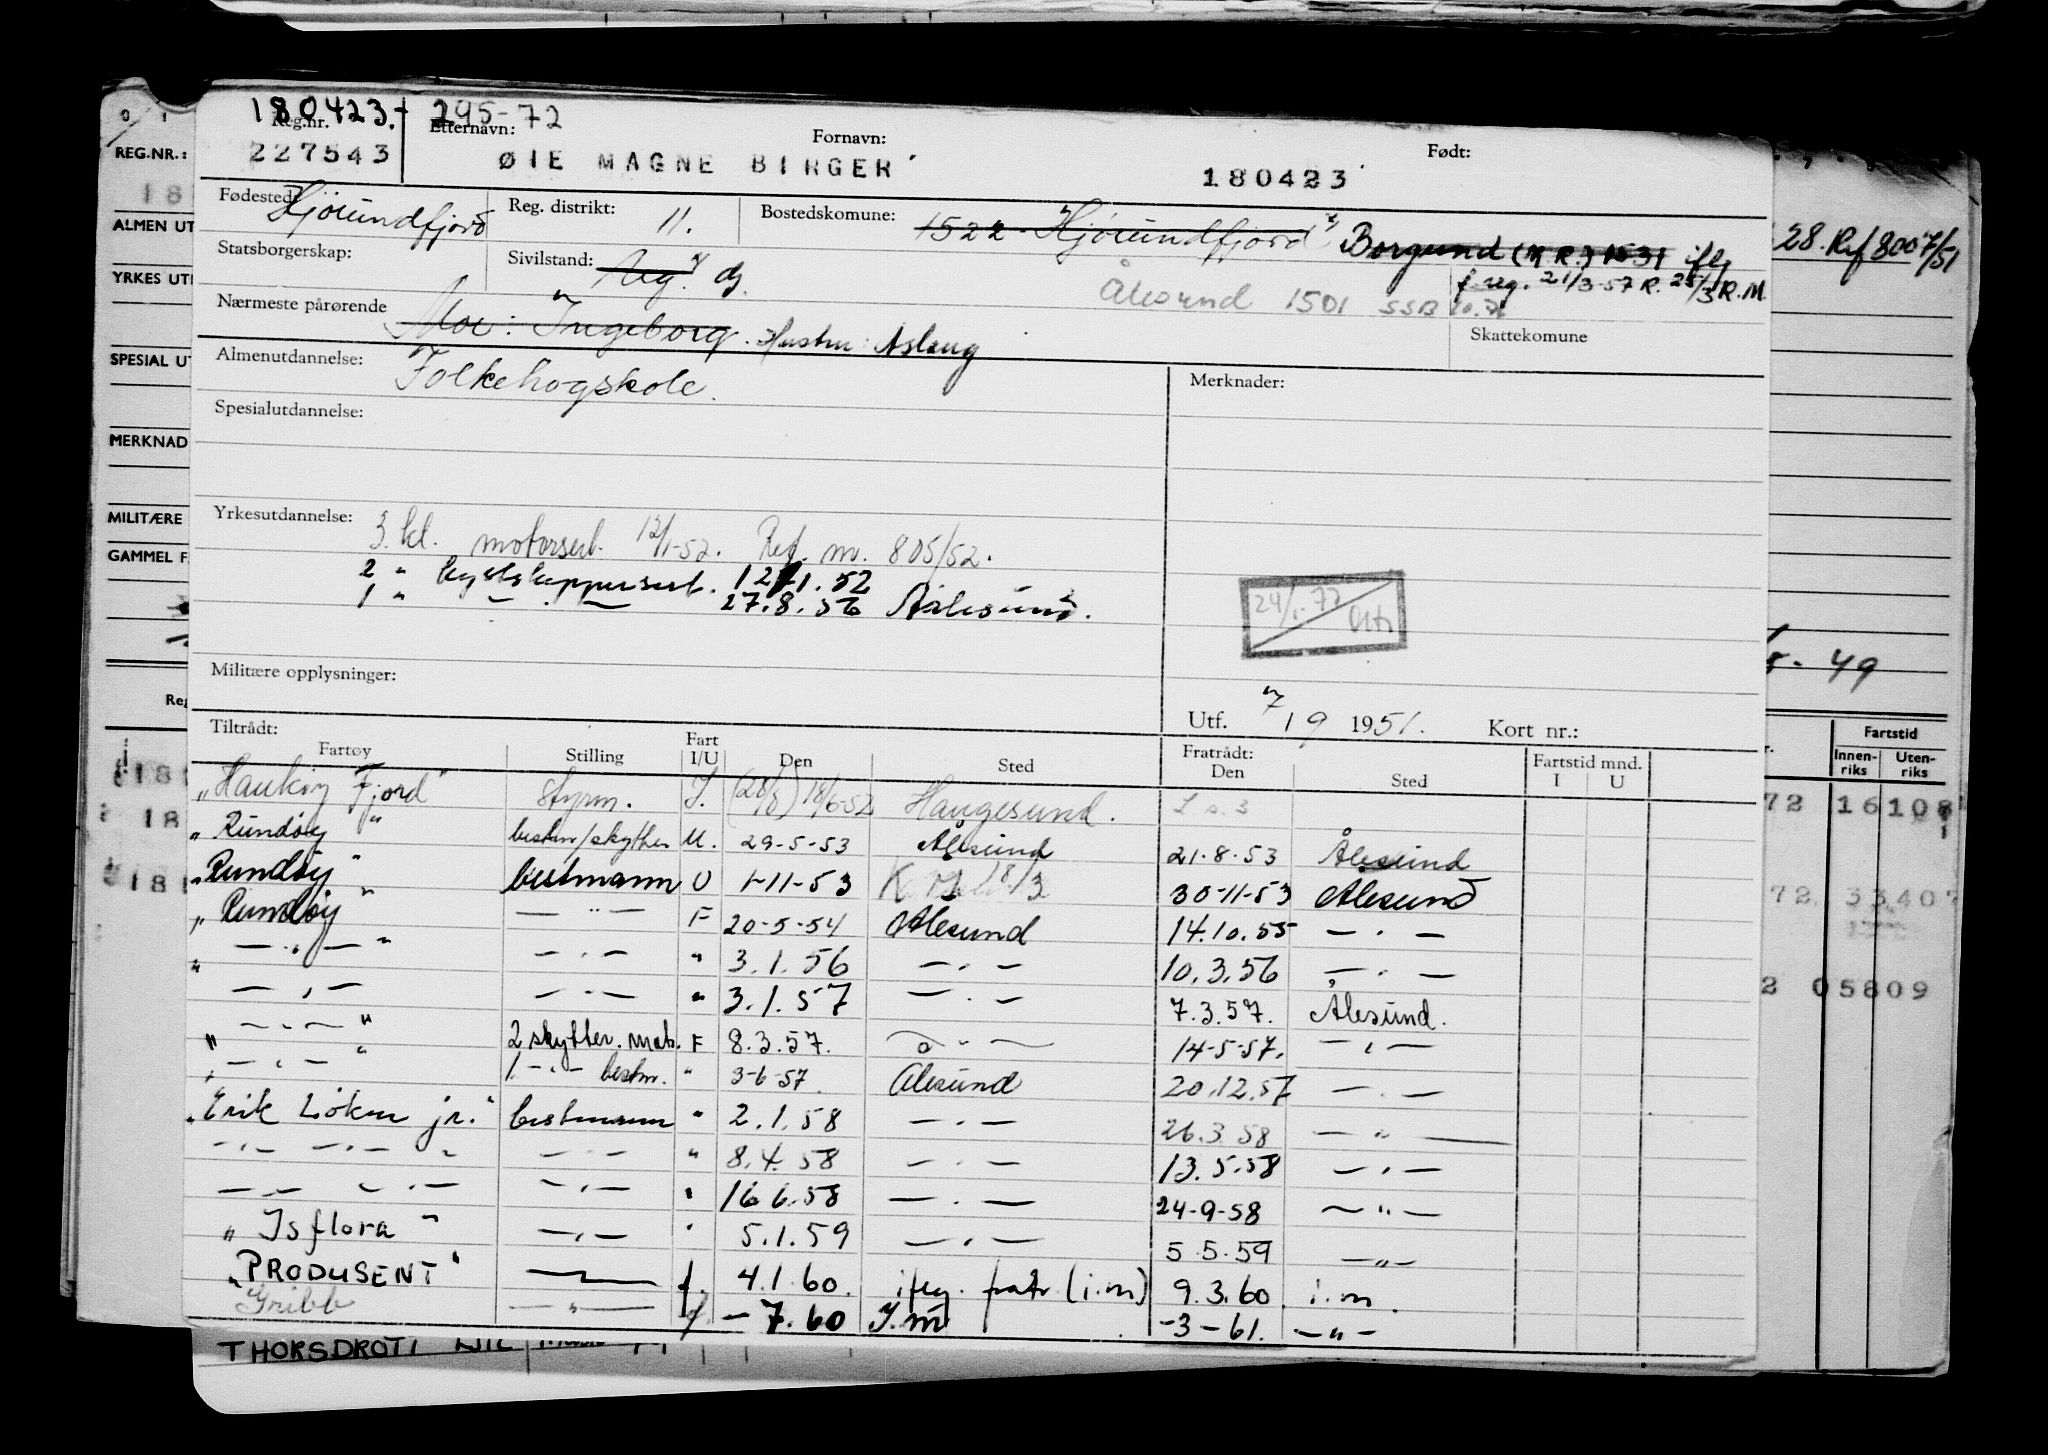 180423.+ 295-72
Reg.nr. Etternavn: Fornavn: Født:
227543 ØIE MAGNE BIRGER 180423
Fødested: Hjørundfjord Reg. distrikt: 11. Bostedskomune: 1522 Hjørundfjord Borgund (M R.) 1531 ifg
f. reg. 21/3-57 R. 25/3 R.M
Statsborgerskap: Sivilstand: Ug. g. Ålesund 1501 SSB
Nærmeste pårørende Mor: Ingeborg. Hustru: Aslaug Skattekomune
Almenutdannelse: Folkehøgskole. Merknader:
Spesialutdannelse:
Yrkesutdannelse: 3. kl. motorsert. 12/1-52. Ref. nr. 805/52.
2 " kystskippersert. 12/1.52
1 " — . — 27.8.56 Aalesund.
24/1.72
Militære opplysninger:
Utf. 7/9 1951. Kort nr.:
Tiltrådt: Fratrådt:
Fartøy Stilling Fart I/U Den Sted Den Sted Fartstid mnd. I U
"Haukøy Fjord" styrm. I. (28/8) 18/6-52 Haugesund.
"Rundøy" bestm/skytter U. 29-5-53 Ålesund 21.8.53 Ålesund
"Rundøy" bestmann U 1-11-53 30-11-53 Ålesund
"Rundøy" — " — F 20-5-54 Ålesund 14.10.55 — . —
" — . — " — . — " 3.1.56 — . — 10.3.56 — . —
— , — — . — " 3.1.57 — . — 7.3.57. Ålesund.
" — . — " 2 skytter. mat. F 8.3.57. — " — 14-5-57. — , —
" — . — " 1. — . — bestm. " 3-6-57. Ålesund 20.12.57 — . —
"Erik Löken jr." bestmann " 2.1.58 — . — 26.3.58 — " —
— . — — . — " — . — " 8.4.58 — . — 13.5.58 — . —
— . — — . — — . — " 16.6.58 — . — 24-9-58 — " —
"Isflora" — . — " 5.1.59 — . — 5.5.59 — " —
"PRODUSENT" — f. 4.1.60. iflg. fratr (i.m) 9.3.60. i.m.
Gribb — " — f. — 7.60 I.m -3-61. — " —
REG.NR.:
ALMEN UT
YRKES UT
SPESIAL UT
MERKNAD
MILITÆRE
GAMMEL F
Reg
28. Ref 8007/51
49
Fartstid
Innen-riks Uten-riks
72 16108
72 33407
2 05809
THORSDROTT